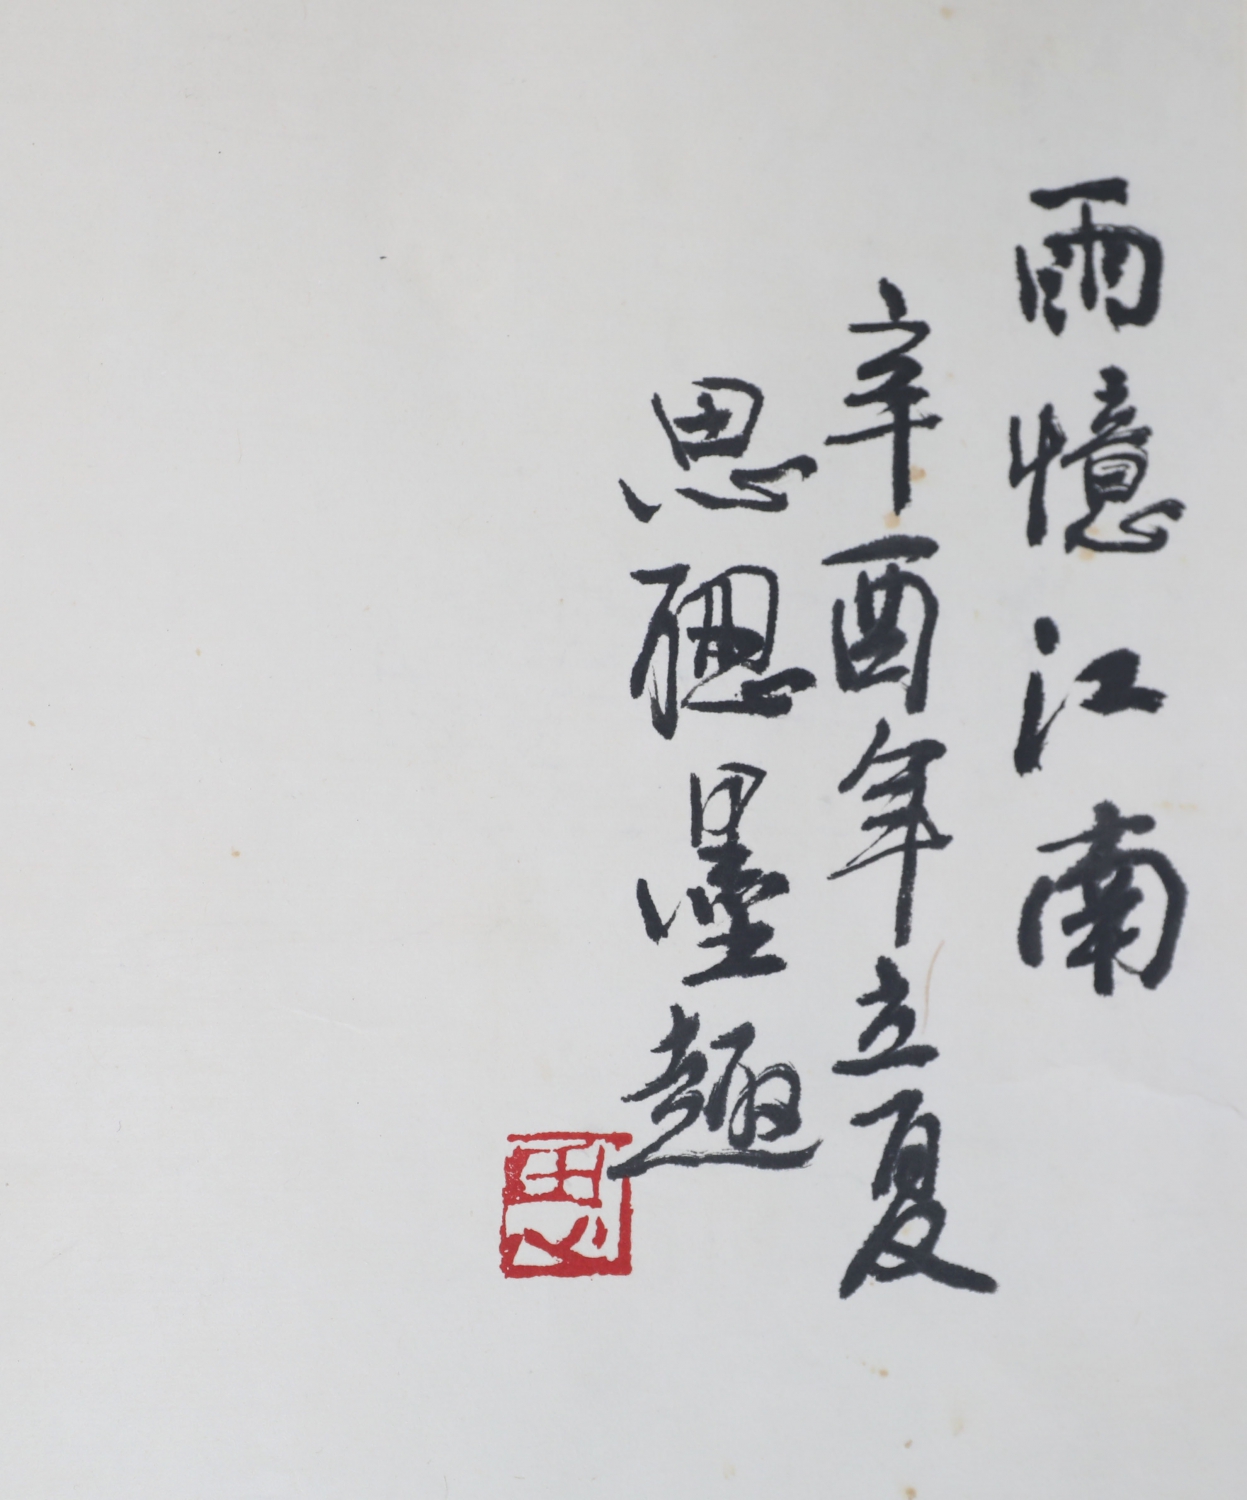 雨憶江南
辛酉年立夏
思聰墨趣
思